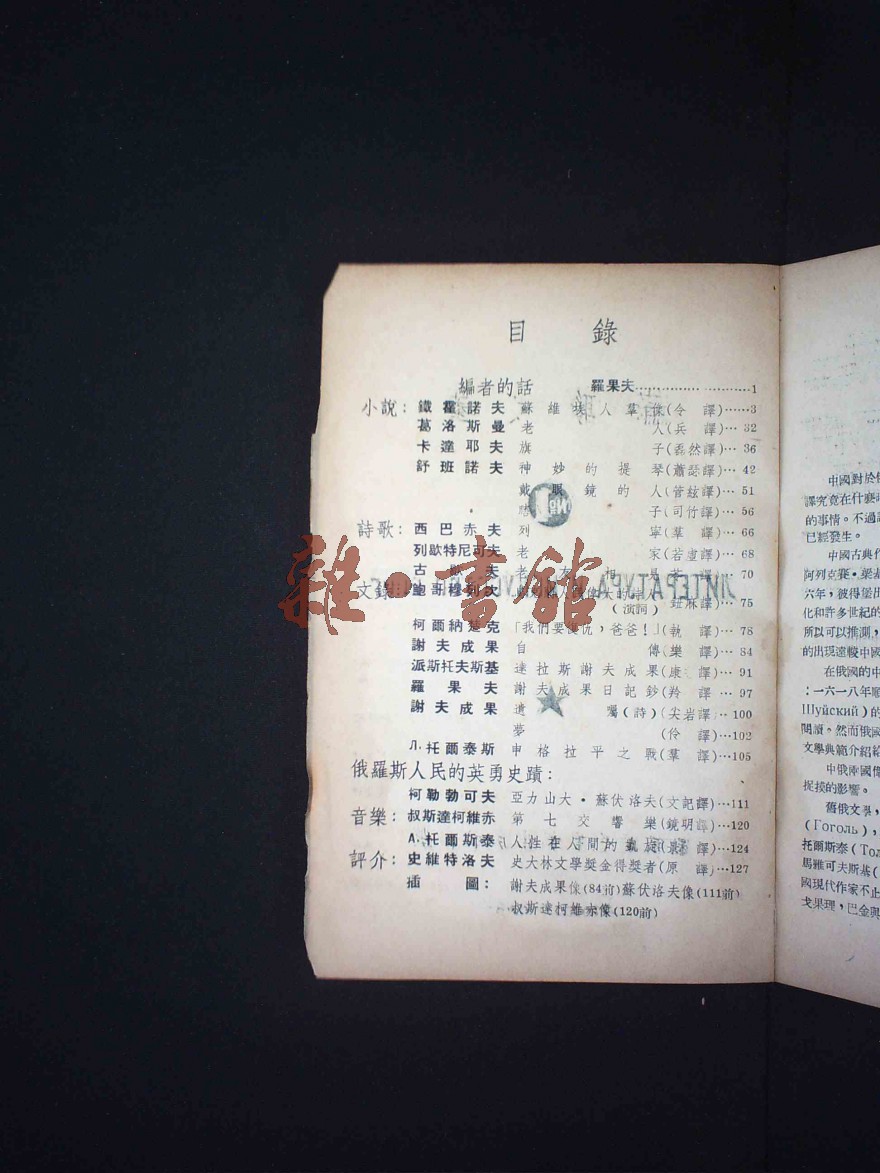 目錄
編者的話 羅果夫……………………1
小說：鐵霍諾夫 蘇維埃人羣像(令譯)……3
葛洛斯曼 老人(兵譯)…32
卡達耶夫 旗子(磊然譯)…36
舒班諾夫 神妙的提琴(蕭瑟譯)…42
戴眼鏡的人(管紘譯)…51
子(司竹譯)…56
詩歌：西巴赤夫 列寧(羣譯)…66
列歇特尼可夫 老家(若虛譯)…68
古歇夫 老譯)…70
文錄：鮑哥穆列次
(演詞) 鈕麻譯)…75
柯爾納楚克 「我們要復仇，爸爸！」(執譯)…78
謝夫成果 自傳(樂譯)…84
派斯托夫斯基 達拉斯謝夫成果(康譯)…91
羅果夫 謝夫成果日記鈔(羚譯)…97
謝夫成果 遺囑(詩)(尖岩譯)…100
夢(伶譯)…102
Л.托爾泰斯 申格拉平之戰(羣譯)…105
俄羅斯人民的英勇史蹟：
柯勒勃可夫 亞力山大·蘇伏洛夫(文記譯)…111
音樂：叔斯達柯維赤 第七交響樂(鏡明譯)…120
А.托爾斯泰 人性在人間的譯)…124
評介：史維特洛夫 史大林文學獎金得獎者(原譯)…127
插圖：謝夫成果像(84前)蘇伏洛夫像(111前)
叔斯達柯維赤像(120前)
ЛИТЕРАТУРА
№1
雜·書館
中國對於俄
譯究竟在什麼時
的事情。不過誰
已經發生。
中國古典作
阿列克賽·梁基
六年，彼得堡出
化和許多世紀的
所以可以推測，
的出現遠較中國
在俄國的中
：一六一八年順
Шуйский)的
閱讀。然而俄國
文學典範介紹給
中俄兩國偉
捉摸的影響。
舊俄文學，
(Гоголь)，
托爾斯泰(Тол
馬雅可夫斯基(
國現代作家不止
戈果理，巴金與